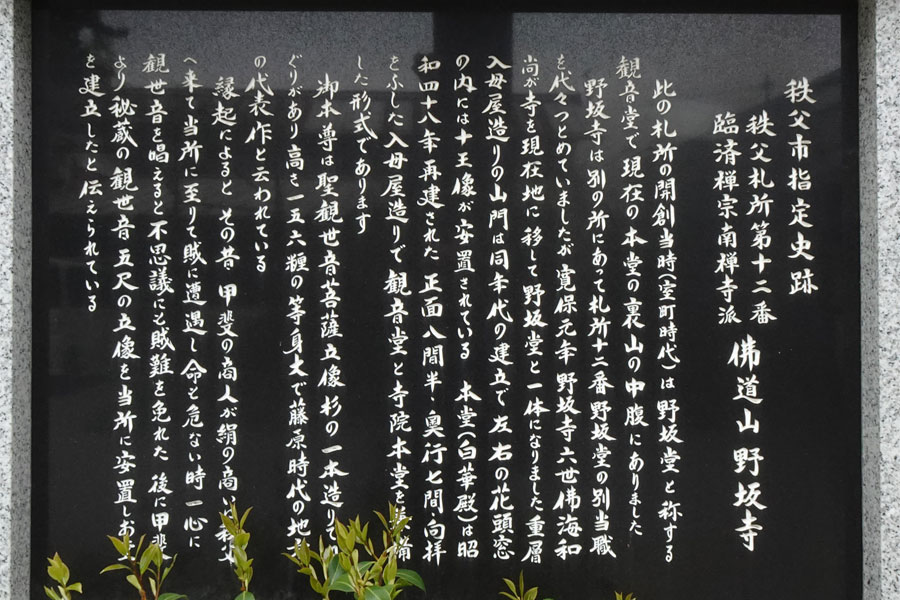 秩父市指定史跡
秩父札所第十二番
臨済禅宗南禅寺派
佛道山 野坂寺
此の札所の開創当時(室町時代)は野坂堂と称する
観音堂で現在の本堂の裏山の中腹にありました
野坂寺は別の所にあって札所十二番野坂堂の別当職
を代々つとめていましたが寛保元年 野坂寺六世佛海和
尚が寺を現在地に移して野坂堂と一体になりました 重層
入母屋造りの山門は同年代の建立で左右の花頭窓
の内には十王像が安置されている 本堂(白華殿)は昭
和四十八年再建された 正面八間半・奥行七間向拝
をふした入母屋造りで観音堂と寺院本堂を備
した形式であります
御本尊は聖観世音菩薩立像杉の一本造りで
ぐりがあり高さ一五六糎の等身大で藤原時代の地方
の代表作と云われている
縁起によると その昔 甲斐の商人が絹の商い 秩父
へ来て当所に至りて賊に遭遇し命も危ない時 一心に
観世音を唱えると不思議にも賊難を免れた 後に甲斐
より秘蔵の観世音五尺の立像を当所に安置しお
を建立したと伝えられている